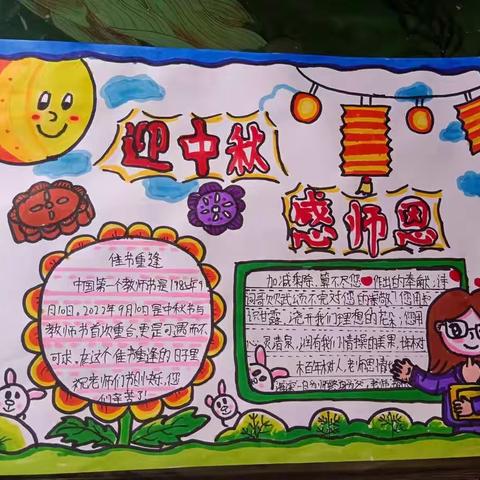 迎中秋
感师恩
佳节重逢
中国第一个教师节是1985年9
月10日,2022年9月10日是中秋节与
教师节首次重合更是可遇而不
可求,在这个佳节重逢的日子里
祝老师们节日快乐,您
们辛苦了!
加减乘除,算不尽您作出的奉献!诗
词歌赋 不完对您的崇敬!您用知
识甘露,浇开我们理想的花朵;您用
心灵清泉,润育我们情操的美果。 树
木百年树人,老师恩情